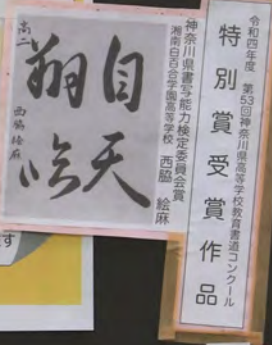 令和四年度 第53回神奈川県高等学校教育書道コンクール
特別賞受賞作品
神奈川県書写能力検定委員会賞
湘南白百合学園高等学校 西脇 絵麻
目天
翔吟
高二 西脇絵麻
す